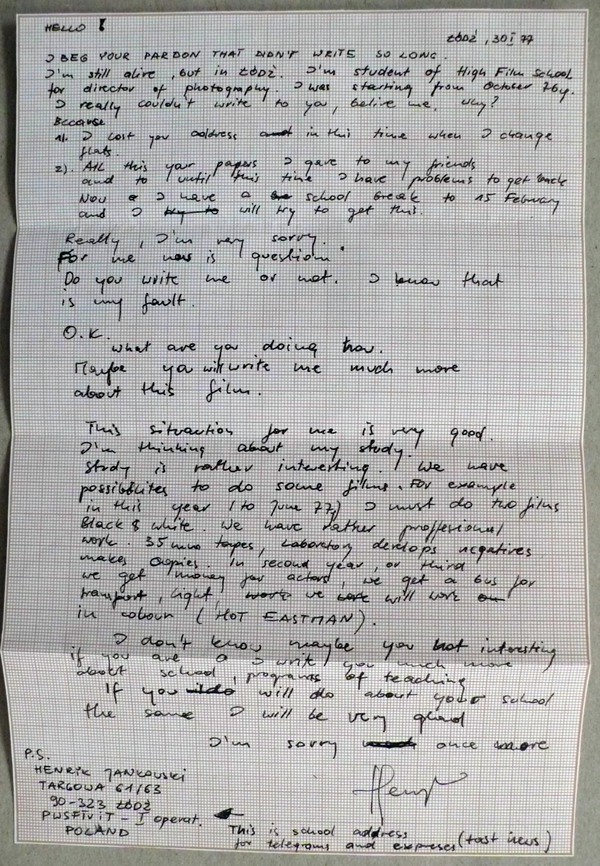 HELLO !
ŁÓDŹ, 30 I 77
I BEG YOUR PARDON THAT DIDN'T WRITE SO LONG.
I'm still alive, but in ŁÓDŹ. I'm student of High Film School
for director of photography. I was starting from October 76y.
I really couldn't write to you, belive me. Why?
Because
1). I lost you address and in this time when I change
flats.
2). All this your papers I gave to my friends
and to until this time I have problems to get back
Now I have a school break to 15 February
and I try to will try to get this.
Really, I'm very sorry.
For me now is question.
Do you write me or not. I know that
is my fault.
O.K.
what are you doing now.
Maybe you will write me much more
about this film.
This situaction for me is very good.
I'm thinking about my study.
Study is rather interesting. We have
possibilites to do some films. For example
in this year (to June 77) I must do two films
Black & white. We have rather proffesional
work. 35 mm tapes, Laboratory develops negatives
makes copies. In second year, or third
we get money for actors, we get a bus for
transport, light, work we will work
in colour (HOT EASTMAN).
I don't know maybe you not interesting
if you are I write you much more
about school, programs of teaching
If you will do about your school
the same I will be very glad
I'm sorry once more
Henryk
P.S.
HENRIK JANKOWSKI
TARGOWA 61/63
90-323 ŁÓDŹ
PWSFTViT - I operat.
POLAND
This is school address
for telegrams and expreses (fast news)